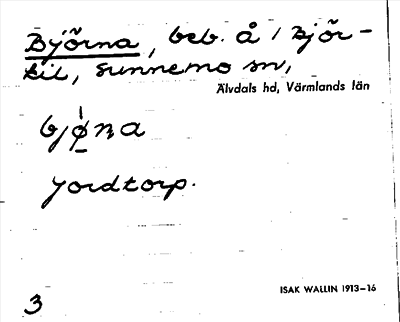 Björna, beb. å 1 Björ-
kil, Sunnemo sn,
Älvdals hd, Värmlands län
jordtorp.
ISAK WALLIN 1913–16
3